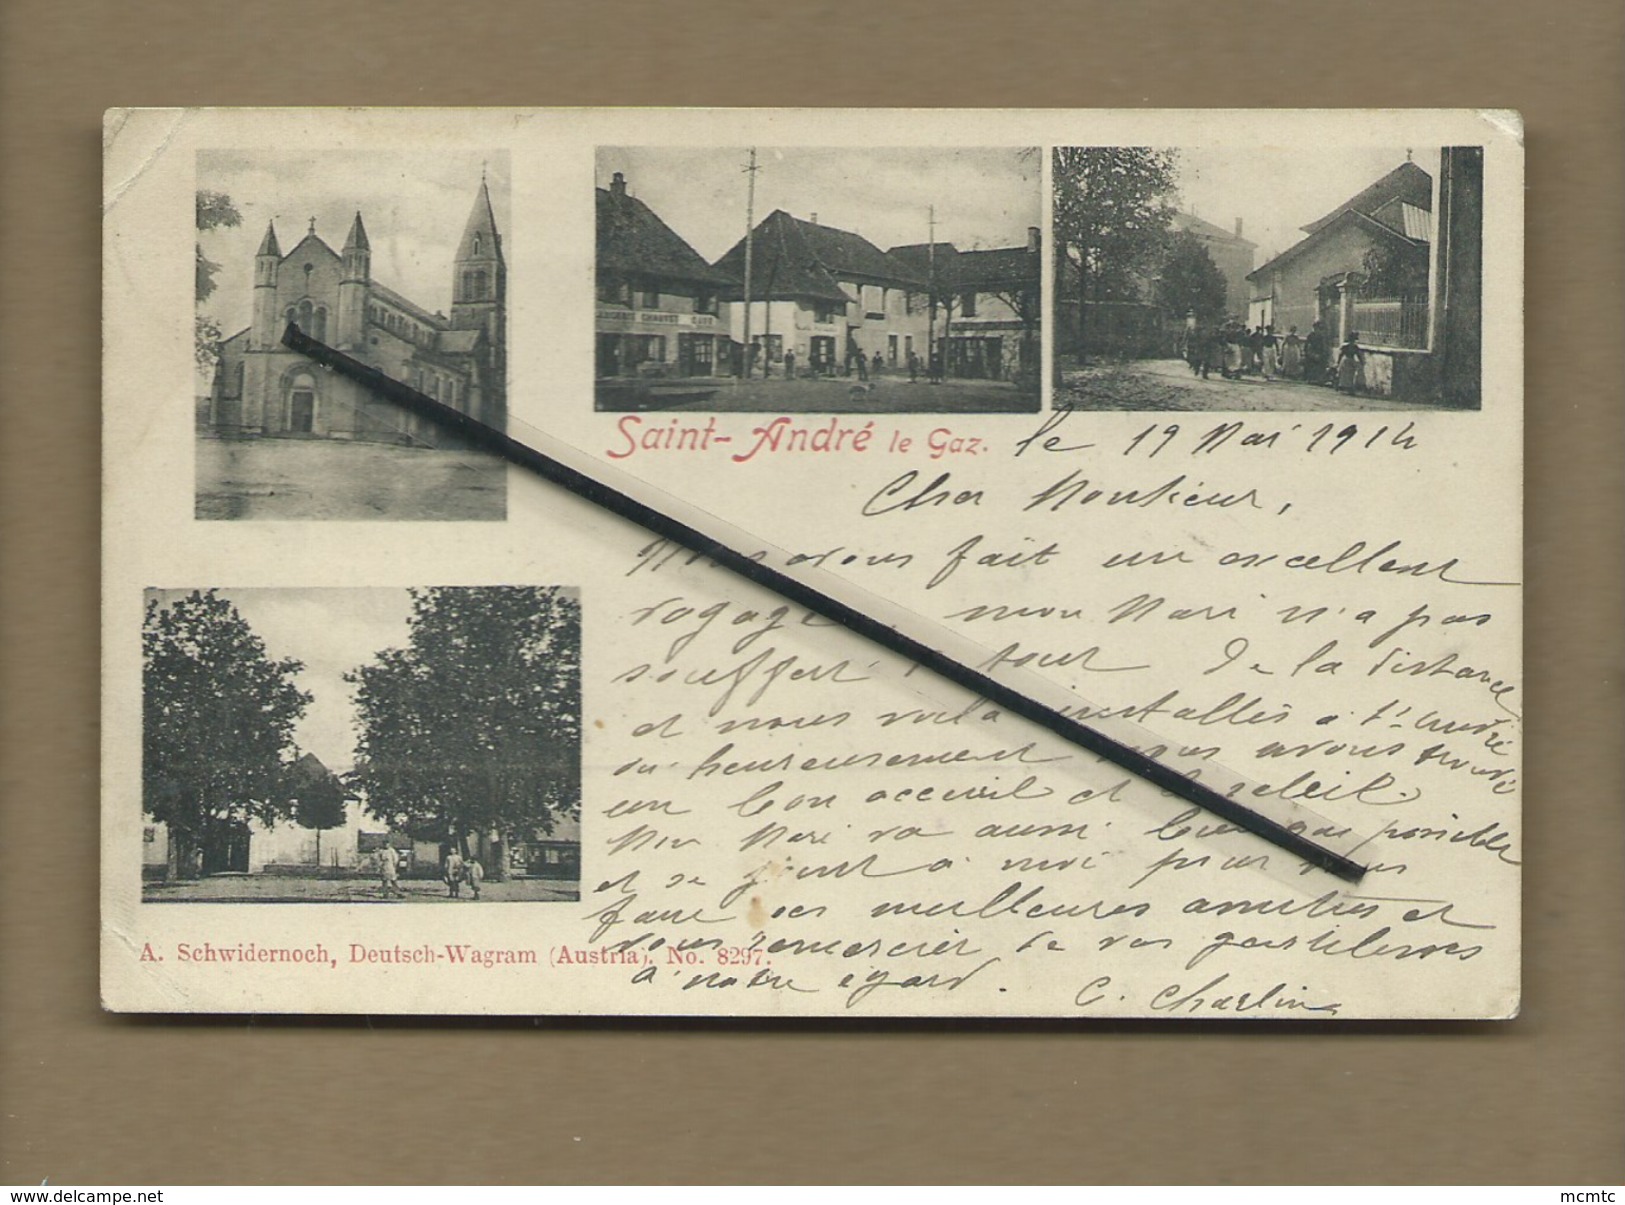 CHAUVET CAFÉ
Saint-André le Gaz. le 19 Mai 1914
Cher Monsieur,
Nous avons fait un excellent
voyage, mon Mari n'a pas
souffert du tout de la distance
et nous voilà installés à St André
où heureusement nous avons trouvé
un bon accueil et le soleil.
Mon Mari va aussi bien que possible
et se joint à moi pour vous
faire nos meilleures amitiés et
vous remercier de vos gentillesses
à notre égard. C. Charlin
A. Schwidernoch, Deutsch-Wagram (Austria). No. 8297.
delcampe.net
mcmtc